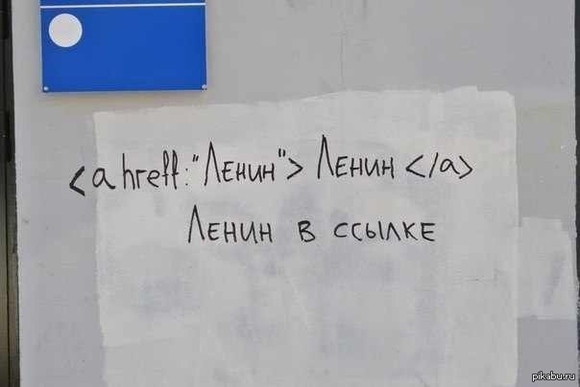 <a hreff:"Ленин"> Ленин </a>
Ленин в ссылке
pikabu.ru